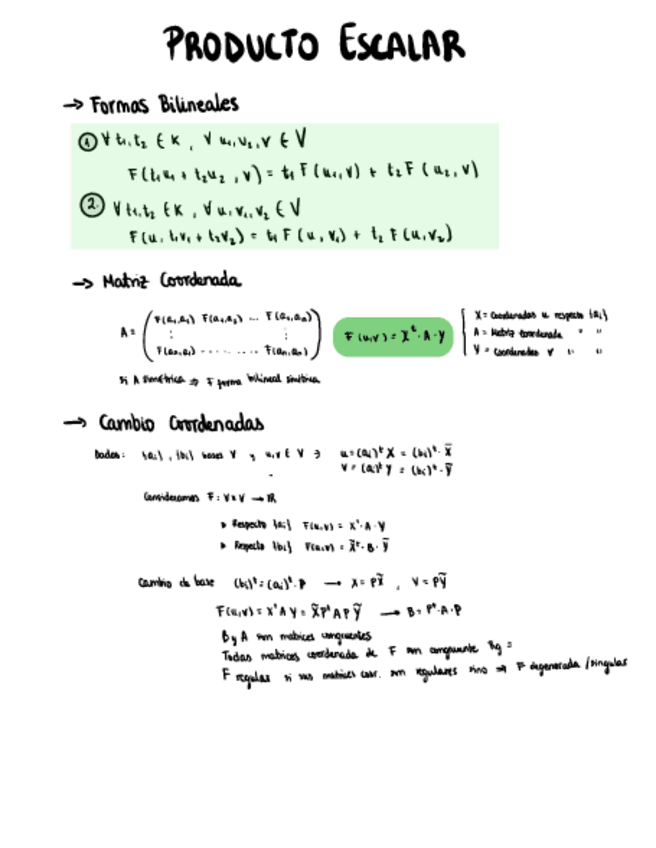 PRODUCTO ESCALAR
→ Formas Bilineales
① ∀ t₁,t₂ ∈ K , ∀ u₁,u₂,v ∈ V
F(t₁u₁ + t₂u₂ , v) = t₁ F(u₁,v) + t₂ F(u₂,v)
② ∀ t₁,t₂ ∈ K , ∀ u,v₁,v₂ ∈ V
F(u, t₁v₁ + t₂v₂) = t₁ F(u,v₁) + t₂ F(u,v₂)
→ Matriz Coordenada
A = ( F(a₁,a₁) F(a₁,a₂) ... F(a₁,aₙ)
⋮ ⋮
F(aₙ,a₁) ......... F(aₙ,aₙ) )
F(u,v) = Xᵗ · A · Y
X = Coordenadas u respecto {aᵢ}
A = Matriz coordenada " "
Y = Coordenadas v " "
Si A simétrica ⇒ F forma bilineal simétrica
→ Cambio Coordenadas
Dados: {aᵢ} , {bᵢ} bases V y u,v ∈ V → u = (aᵢ)ᵗ X = (bᵢ)ᵗ · X̃
V = (aᵢ)ᵗ Y = (bᵢ)ᵗ · Ỹ
Consideramos F: V×V → ℝ
▸ Respecto {aᵢ} F(u,v) = Xᵗ · A · Y
▸ Respecto {bᵢ} F(u,v) = X̃ᵗ · B · Ỹ
Cambio de base (bᵢ)ᵗ = (aᵢ)ᵗ · P → X = PX̃ , Y = PỸ
F(u,v) = XᵗAY = X̃PᵗAPỸ → B = Pᵗ·A·P
B y A son matrices congruentes
Todas matrices coordenada de F son congruente Rg =
F regular si sus matrices coor. son regulares sino → F degenerada / singular